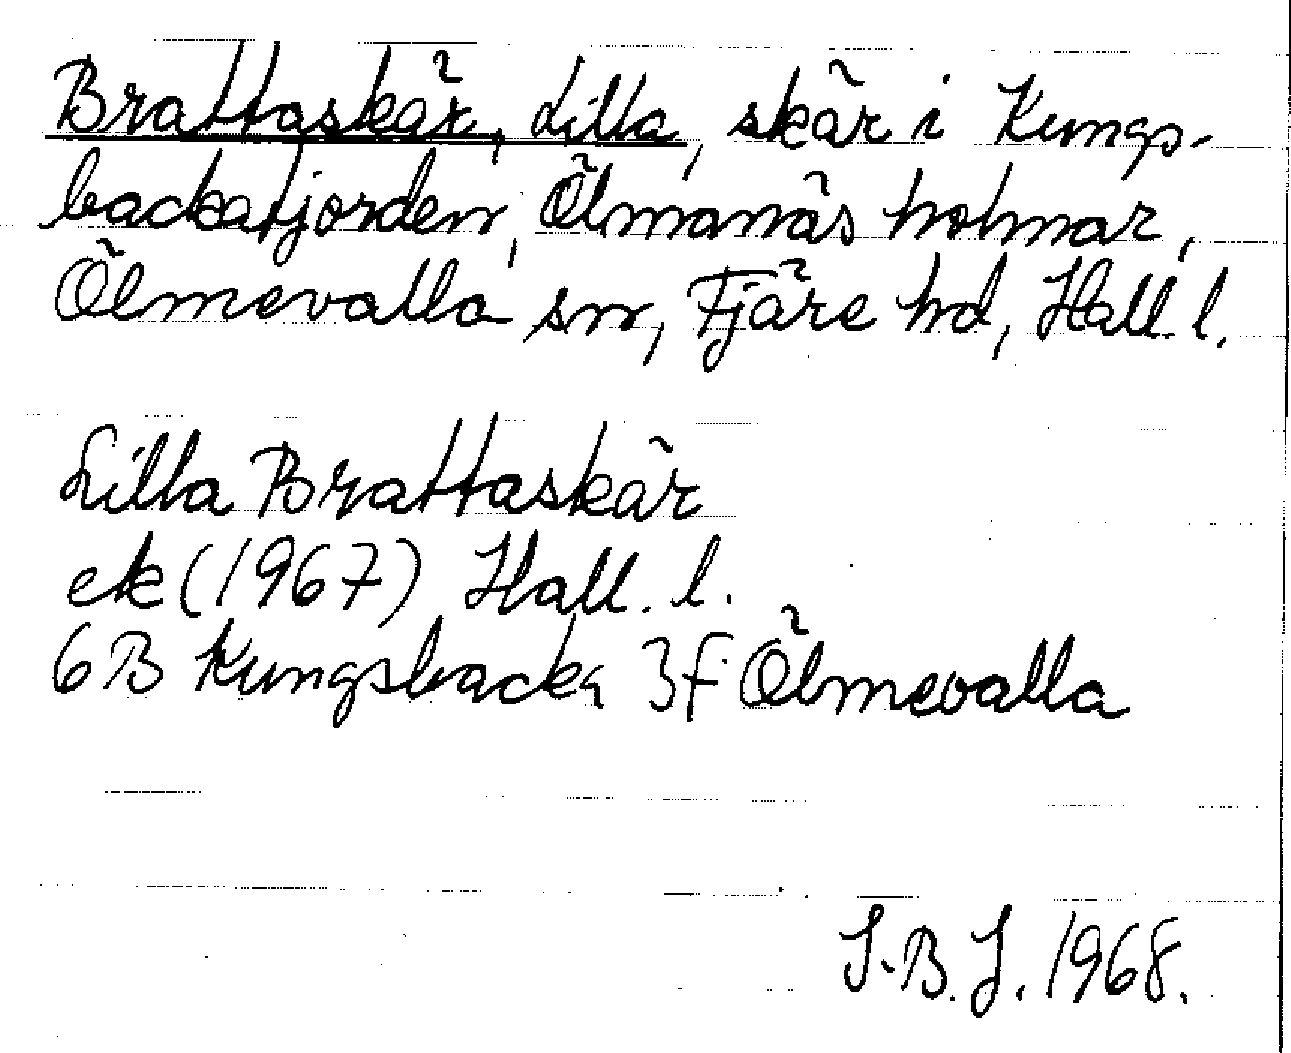 Brattaskär, Lilla, skär i Kungs-
backafjorden, Ölmanäs holmar,
Ölmevalla sn, Fjäre hd, Hall l.
Lilla Brattaskär
ek (1967) Hall. l.
6B Kungsbacka 3f Ölmevalla
S.B.J. 1968.